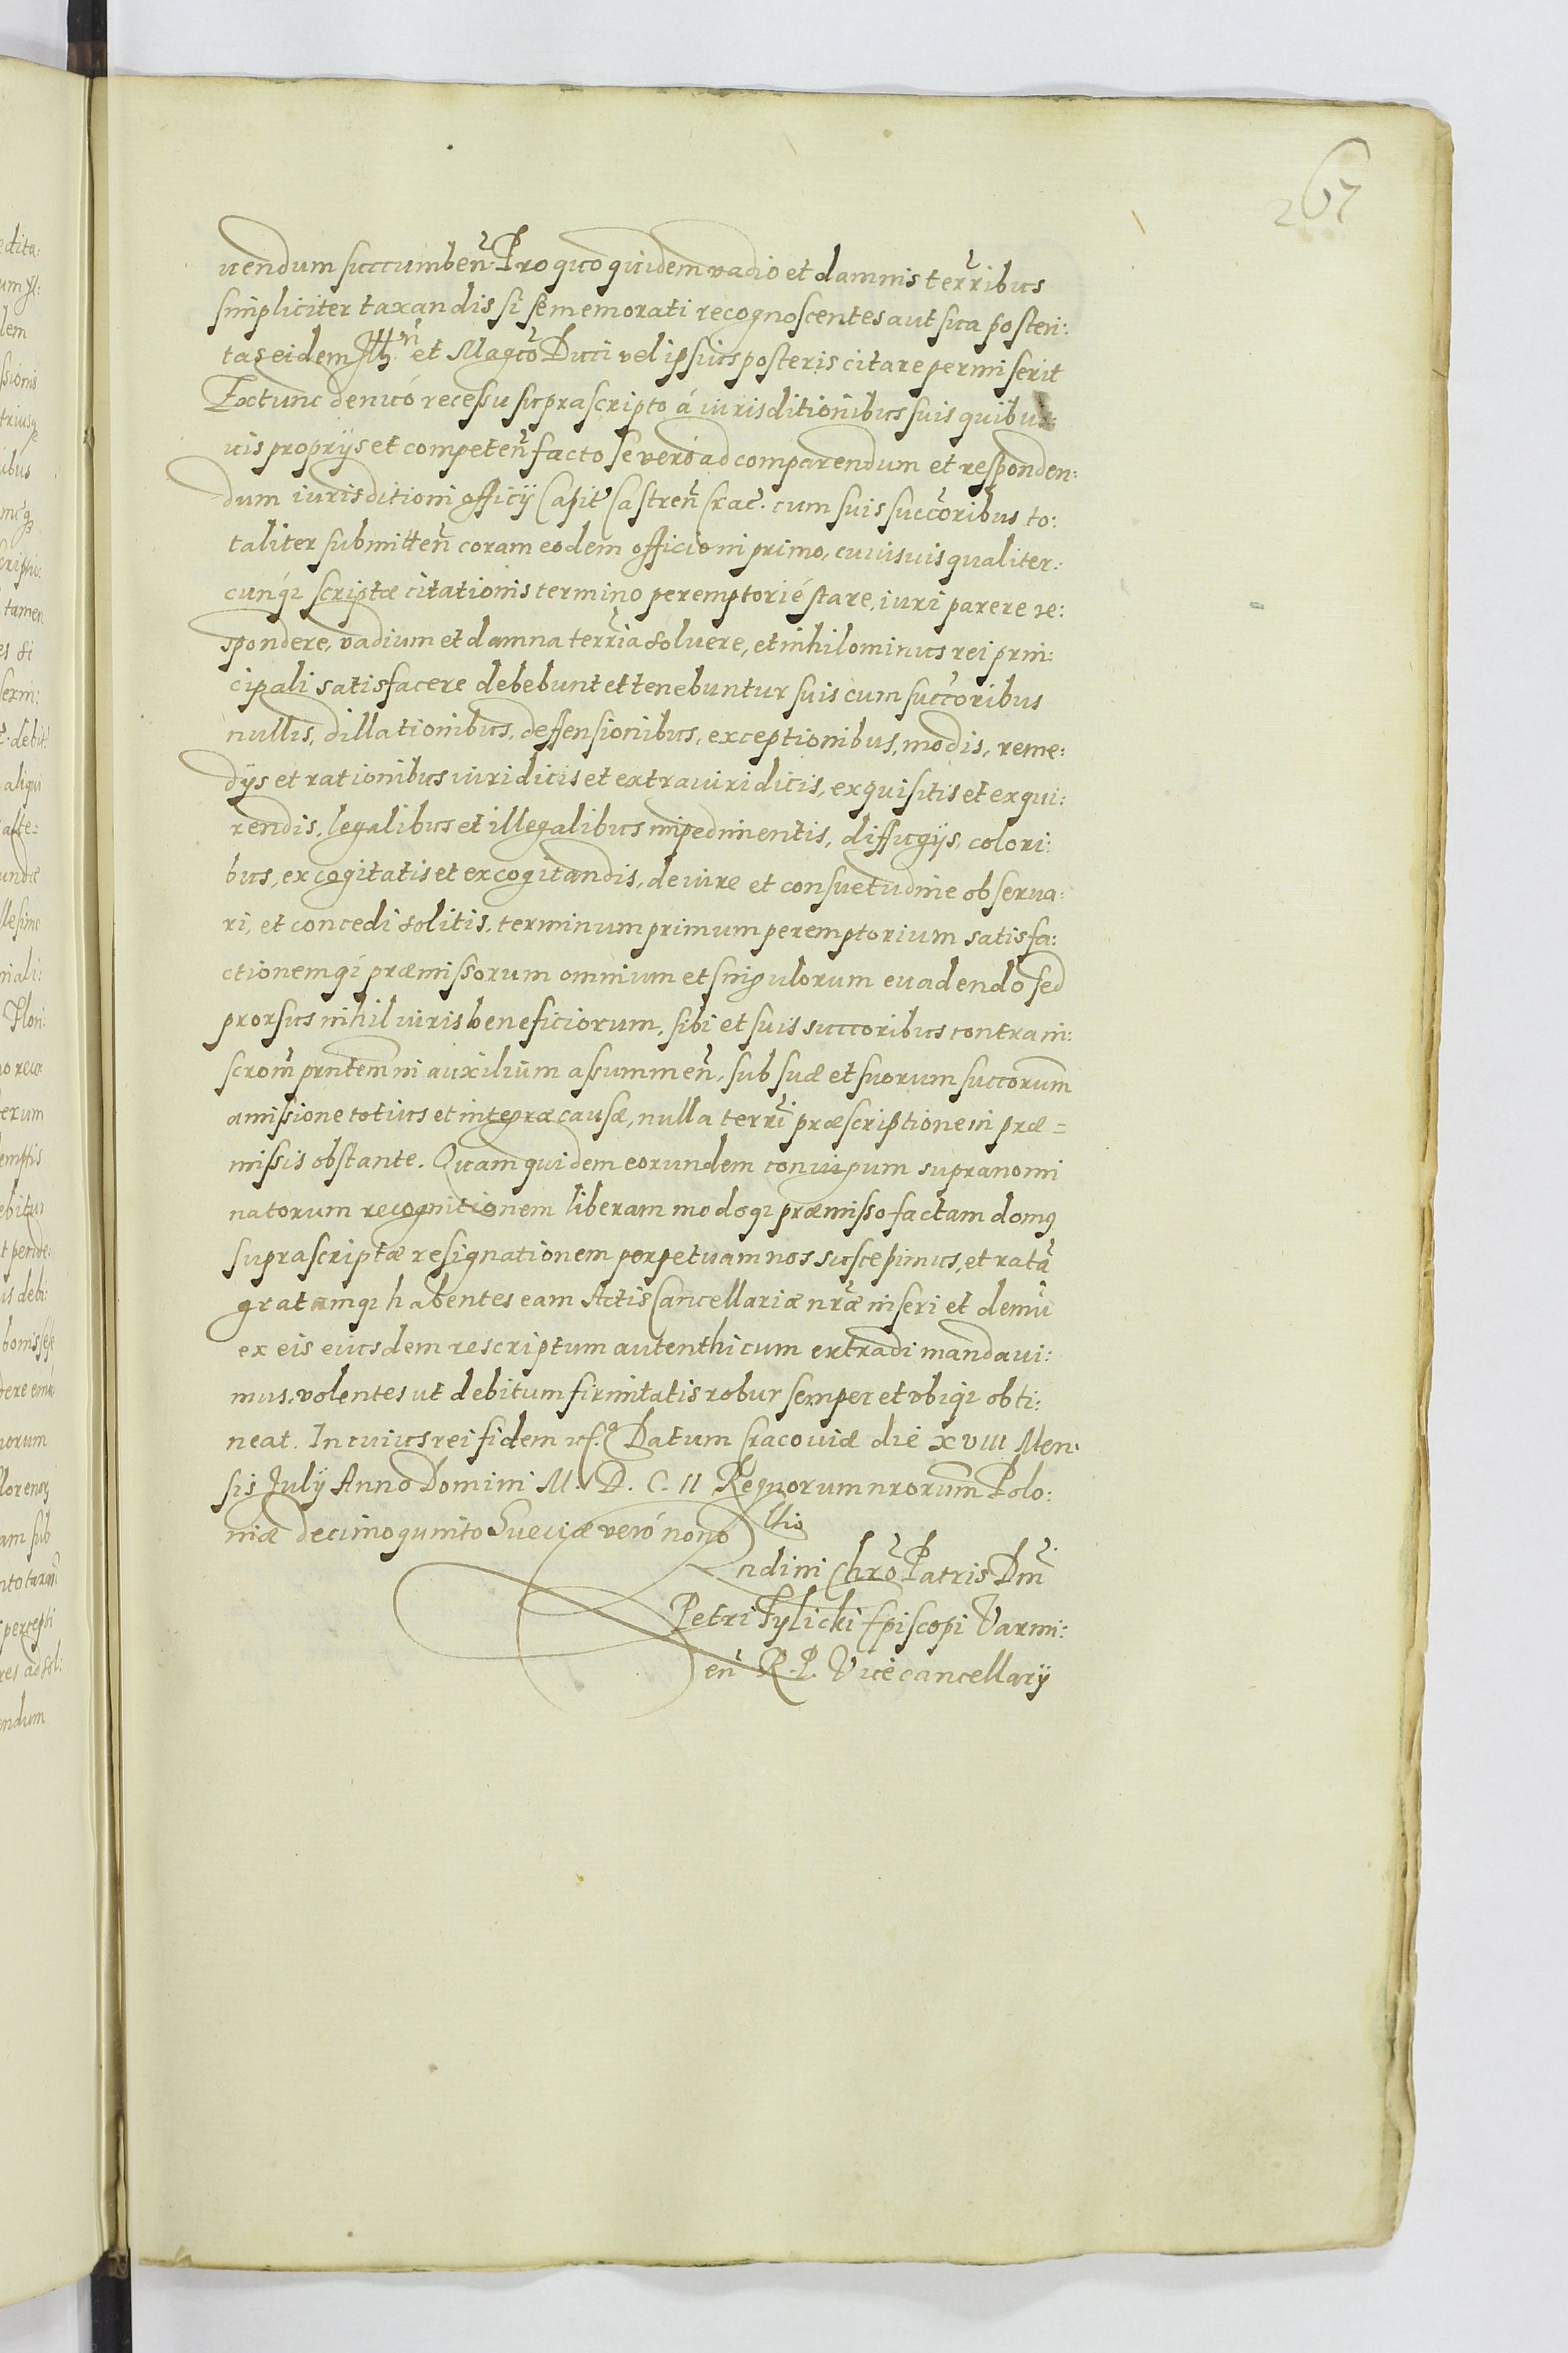 267
uendum succumben̄. Pro quo quidem vadio et damnis terribus
simpliciter taxandis si se memorati recognoscentes aut sua posteri:
tas eidem Illri et Magco Duci vel ipsius posteris citare permiserit
Extunc denuó recessu supra scripto á iurisditionibus suis quibus
uis proprijs et competen̄ facto se veró ad comparendum et responden:
dum iurisditioni officij Capit Castren̄ Crac. cum suis succoribus to:
taliter submitten̄ coram eodem officio in primo, cuiusuis qualiter:
cunq; scriptæ citationis termino peremptorié stare, iuri parere re:
spondere, vadium et damna terria soluere, et nihilominus rei prin:
cipali satisfacere debebunt et tenebuntur suis cum succoribus
nullis, dillationibus, deffensionibus, exceptionibus, modis, reme:
dijs et rationibus iuridicis et extraiuridicis, exquisitis et exqui:
rendis, legalibus et illegalibus impedimentis, diffugijs, colori:
bus, excogitatis et excogitandis, de iure et consuetudine obserua:
ri, et concedi solitis, terminum primum peremptorium satisfa:
ctionemq; præmissorum omnium et singulorum euadendo sed
prorsus nihil iuris beneficiorum, sibi et suis succoribus contra in:
scrom̄ prntem in auxilium assummen̄, sub suæ et suorum succorum
amissione totius et integræ causæ, nulla terri præscriptione in præ=
missis obstante. Quam quidem eorundem coniugum supranomi
natorum recognitionem liberam modoq; præmisso factam domus
suprascriptæ resignationem perpetuam nos suscepimus, et ratā
gratamq; habentes eam Actis Cancellariæ nr̄æ inseri et demū
ex eis eiusdem rescriptum autenthicum extradi mandaui:
mus, volentes ut debitum firmitatis robur semper et vbiq; obti:
neat. In cuius rei fidem Datum Cracouiæ die XVIII Men:
sis July Anno Domini M. D. C. II Regnorum nrorum Polo:
niæ decimo quinto Sueciæ veró nono
ndini Chro Patris Dni
Petri Tylicki Episcopi Varmi:
en̄ R. P. Vicecancellarij